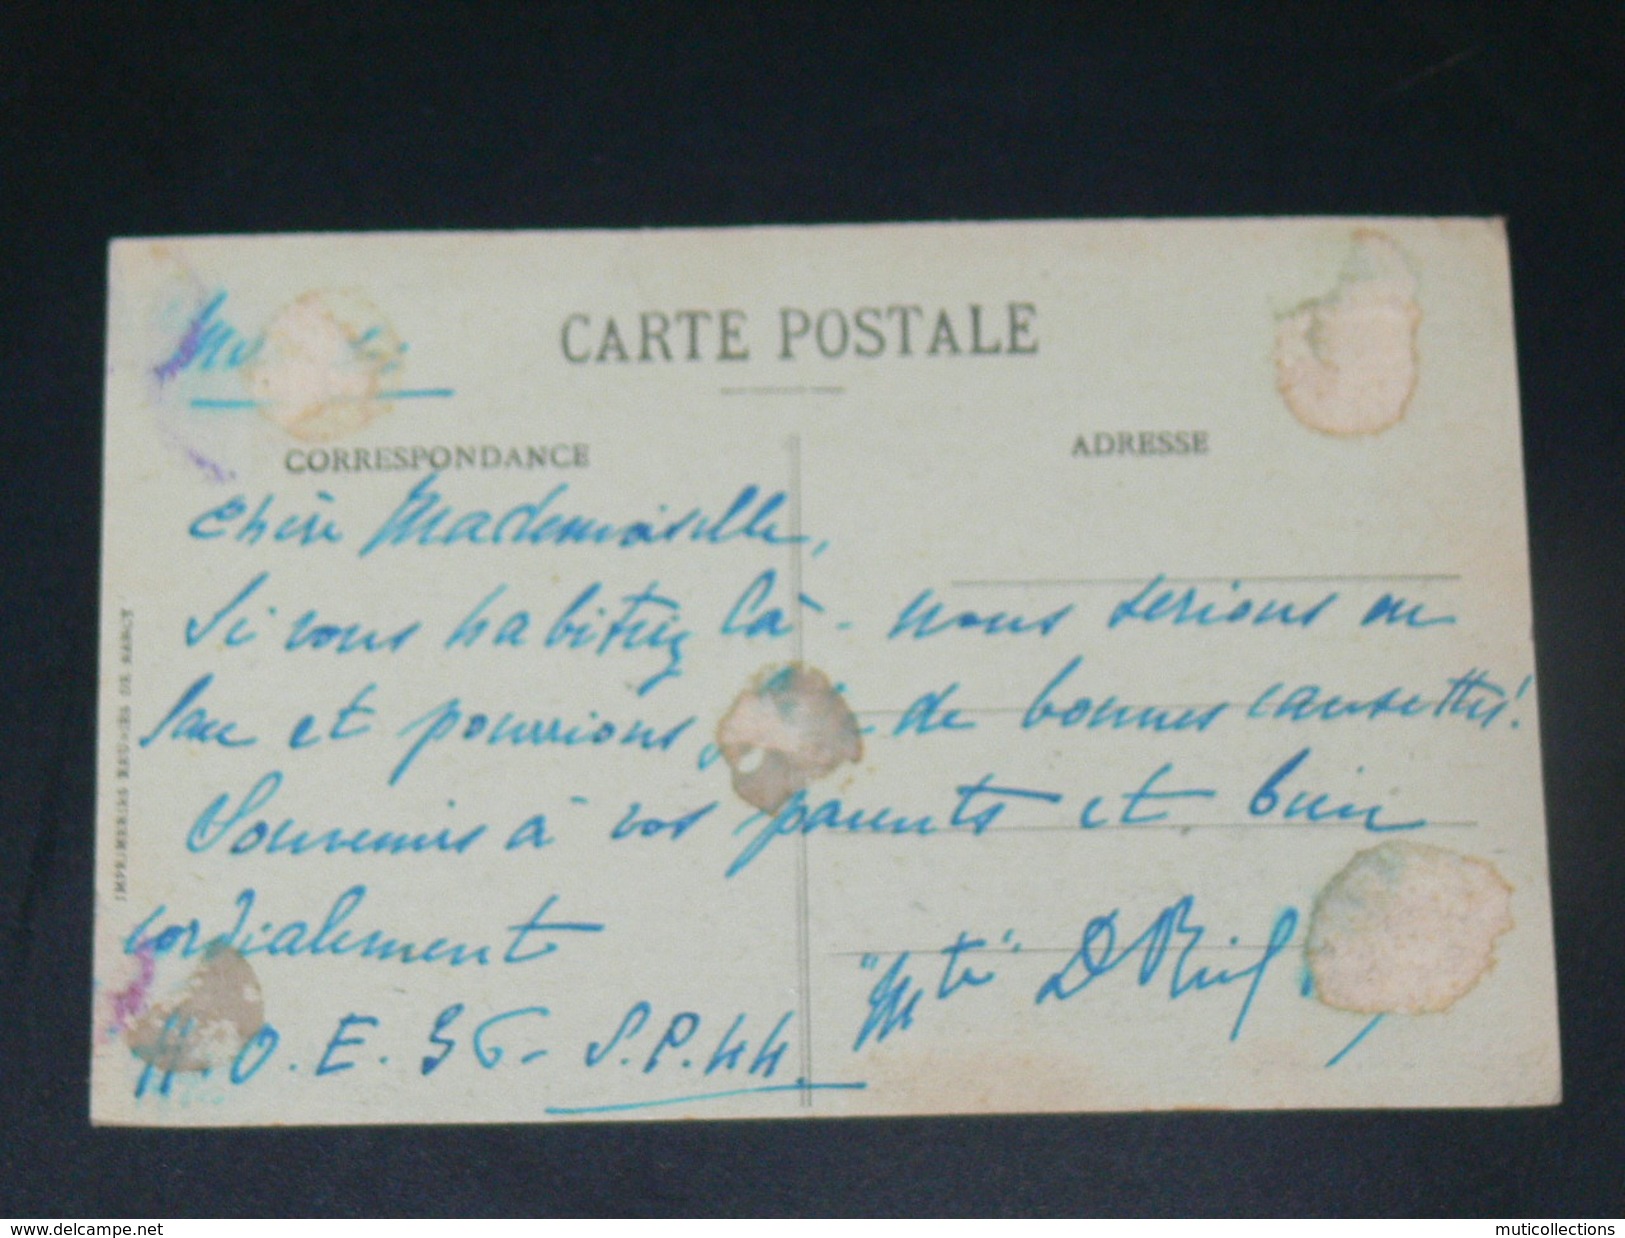 CARTE POSTALE
CORRESPONDANCE
ADRESSE
Chère Mademoiselle,
Si vous habitiez là - nous serions en
face et pourrions de bonnes causettes!
Souvenirs à vos parents et bien
cordialement
"Mte" D
H.O.E. 36 - S.P.44.
IMPRIMERIES REUNIES DE NANCY
delcampe.net
muticollections